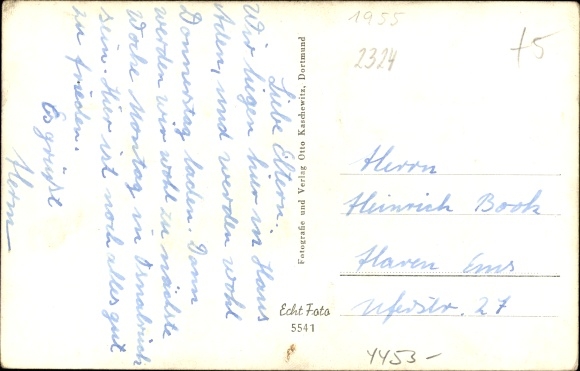 Liebe Eltern.
Wir liegen hier in Haus
Aden, und werden wohl
Donnerstag laden. Dann
werden wir wohl zu nächste
Woche Montag in Osnabrück
sein. Hier ist noch alles gut
zu frieden.
Es grüßt
Herm
Fotografie und Verlag Otto Kaschewitz, Dortmund
Echt Foto
5541
1955
2324
+5
Herrn
Heinrich Book
Haren Ems
Uferstr. 27
4453-